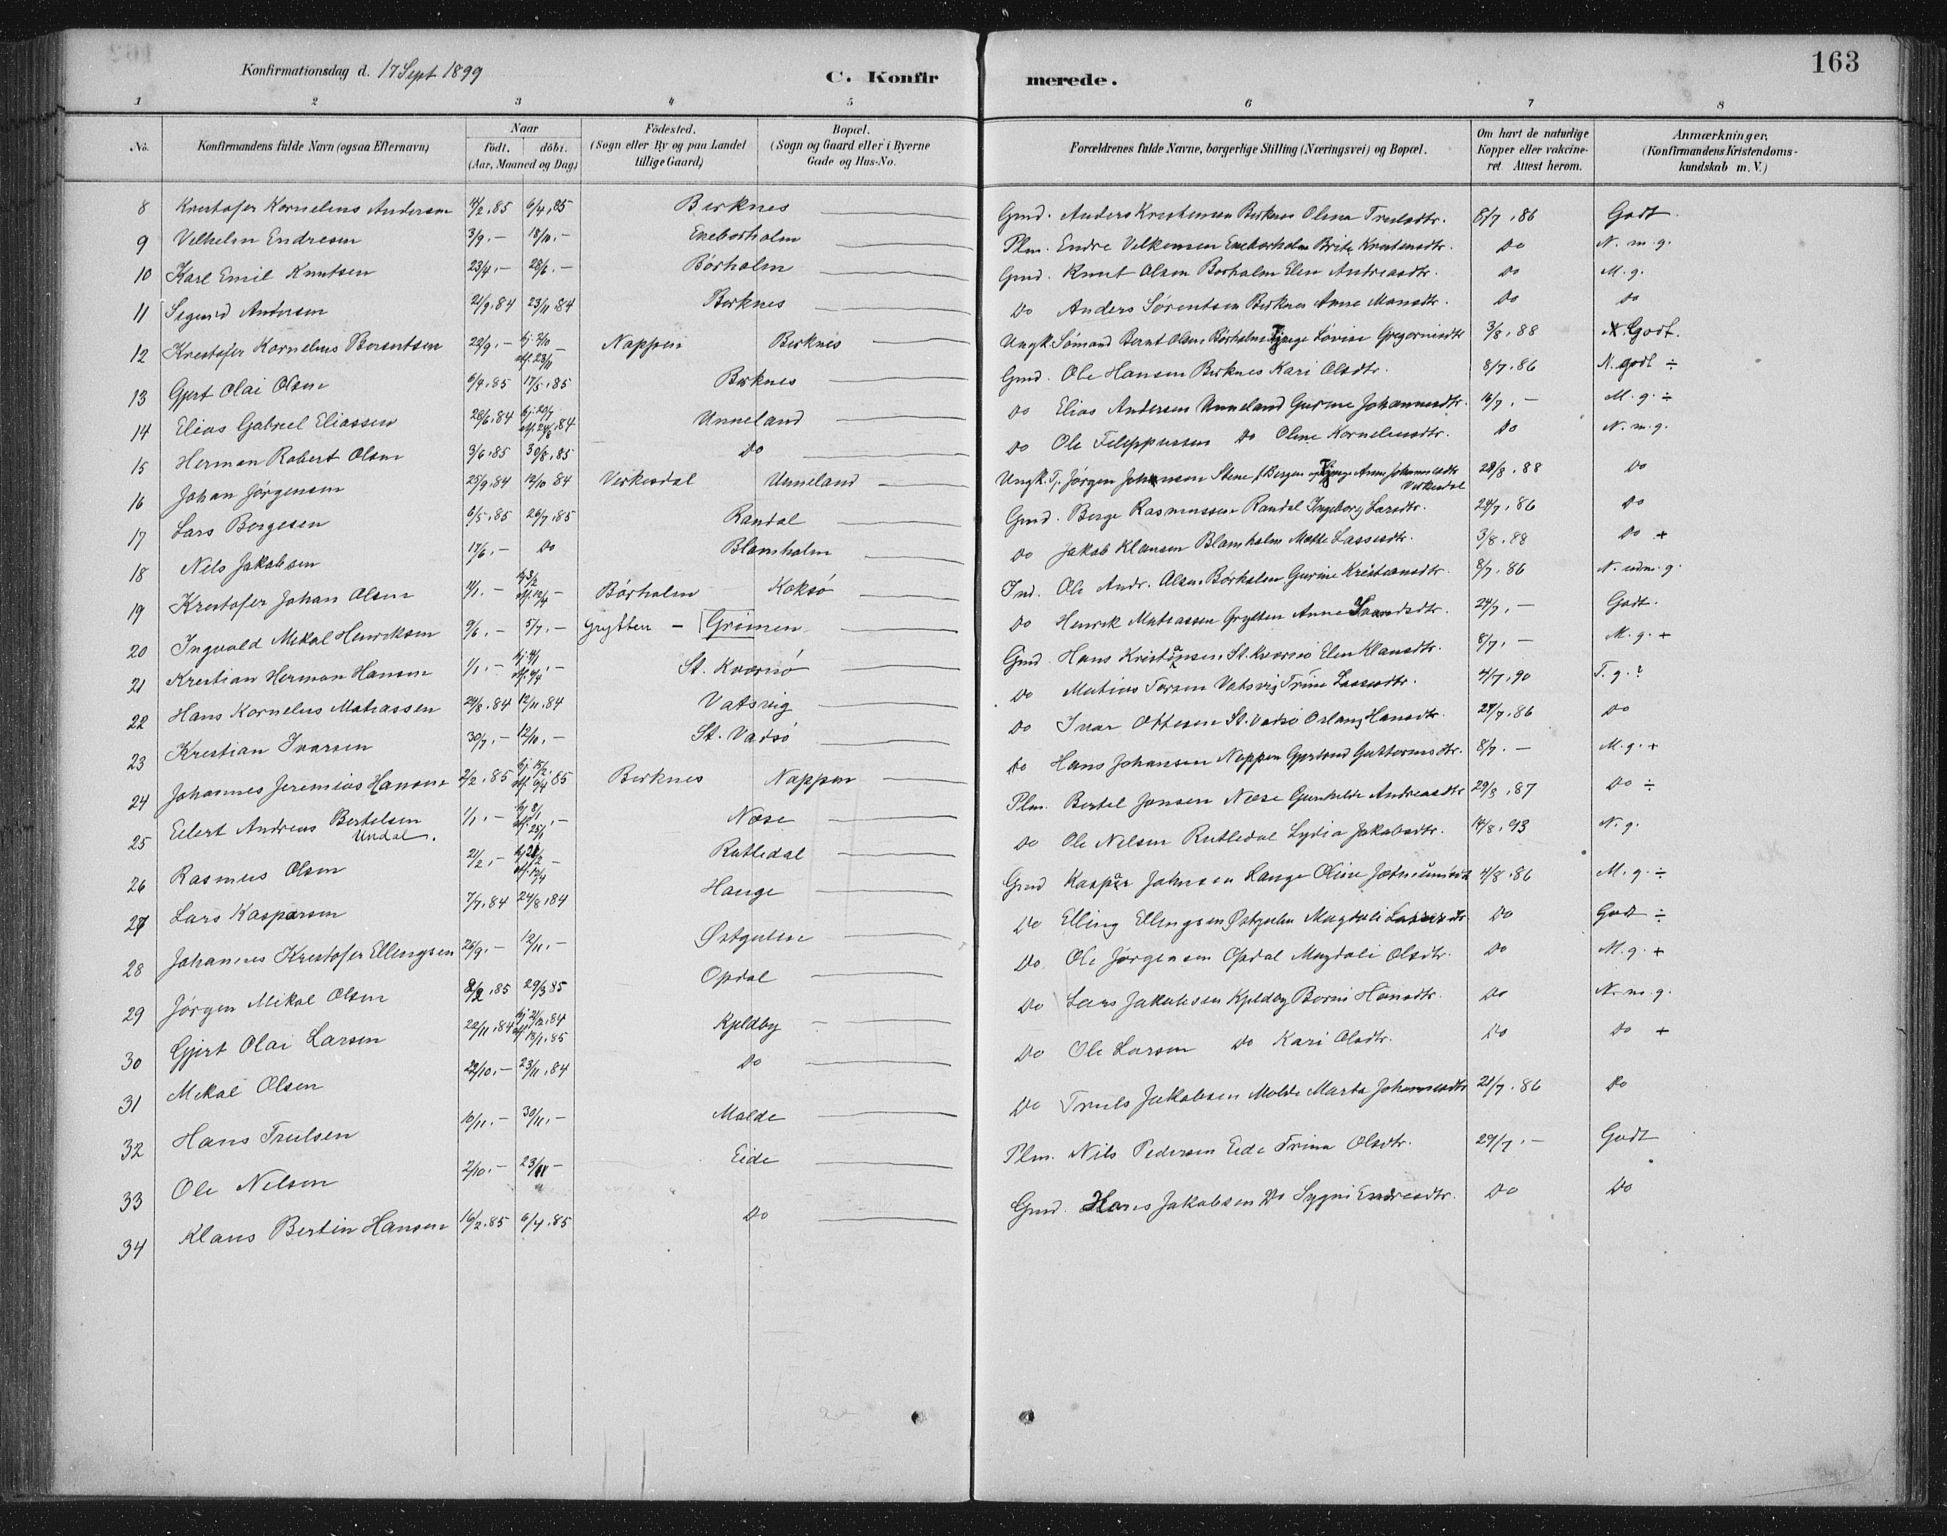 163
Konfirmationsdag d. 17 Sept 1899
C. Konfirmerede.
1 2 3 4 5 6 7 8
No. Konfirmandens fulde Navn (ogsaa Efternavn) Naar födt. döbt. (Aar, Maaned og Dag) Födested. (Sogn eller By og paa Landet tillige Gaard) Bopæl. (Sogn og Gaard eller i Byerne Gade og Hus-No. Forældrenes fulde Navne, borgerlige Stilling (Næringsvei) og Bopæl. Om havt de naturlige Kopper eller vakcineret Attest herom. Anmærkninger. (Konfirmandens Kristendomskundskab m. V.)
8 Kristofer Kornelius Andersen 4/2.85 6/4.85 Birknes Gmd. Anders Kristensen Birknes Olina Trulsdtr. 8/7.86 Godt
9 Vilhelm Endresen 3/9.- 18/10.- Eneborholm Plm. Endre Velkensen Eneborholm Brita Kristensdtr. Do N. m. g.
10 Karl Emil Knutsen 23/4.- 28/6.- Börholm Gmd. Knut Olsen Borholm Elen Andreasdtr. Do M. g.
11 Sigurd Andersen 21/9.84 23/11.84 Birknes Do Anders Sörentsen Birknes Anne Monsdtr. Do Do
12 Kristofer Kornelius Berentsen 22/9.- hj. 2/10 off. 23/11 - Nappen Birknes Ungk. Sömand Bernt Olsen Börholm Pige Lovise Gregoriusdtr 3/8.88 Godt.
13 Gjert Olai Olsen 6/4.85 17/5.85 Birknes Gmd. Ole Hansen Birknes Kari Olsdtr. 8/7.86 N. godt ÷
14 Elias Gabriel Eliassen 28/6.84 hj. 20/7 off. 24/8.84 Unneland Do Elias Andersen Unneland Gurine Johannesdtr. 16/7.- M. g. ÷
15 Herman Robert Olsen 3/6.85 30/8.85 Do Do Ole Filippussen Do Oline Korneliusdtr. Do N. m. g.
16 Johan Jörgensen 25/9.84 12/10 84 Virkesdal Unneland Ungk. Tj. Jörgen Johansen Stene Bergen Pige Anna Johannesdtr Virkesdal 28/8.88 Do
17 Lars Börgesen 6/5.85 26/7.85 Randal Gmd. Börge Rasmussen Randal Ingeborg Larsdtr. 24/7.86 Do
18 Nils Jakobsen 17/6.- Do Blamholm Do Jakob Klausen Blamholm Mette Lassesdtr. 3/8.88 Do +
19 Kristofer Johan Olsen 1/1.- hj. 3/2 off. 12/4 - Börholm Koksö Ind. Ole Andr. Olsen Börholm Gurine Kristiansdtr. 8/7.86 N. udm. g.
20 Ingvald Mikal Henriksen 9/6.- 5/7.- Grytten - Grimen Do Henrik Matiassen Grytten Anne 24/7.- Godt.
21 Kristian Herman Hansen 1/1.- hj. 4/1 off. 6/4.- St. Kværnö Gmd. Hans Kristensen St. Kværnö Elen Klausdtr. 8/7.- M. g. +
22 Hans Kornelius Matiassen 24/8.84 12/11.84 Vatsvig Do Matias Larsen Vatsvig Trine Lassesdtr. 4/7.90 T. g. ?
23 Kristian Ivarsen 30/7.- 12/10.- St. Vadsö Do Ivar Ottesen St. Vadsö Oslaug Hansdtr. 27/7.86 Do
24 Johannes Jeremias Hansen 2/2.85 hj. 15/2 off. 6/4 85 Birknes Nappen Do Hans Johansen Nappen Gjertrud Guttormsdtr. 8/7.- M. g. +
25 Eilert Andreas Bertelsen Undal. 1/1.- hj. 8/1 off. 25/1 .- Næse Plm. Bertel Jonsen Næse Gunhilde Andreasdtr 29/8.87 Do ÷
26 Rasmus Olsen 21/2.- hj. 21/2 off. 12/4 - Rutledal Do Ole Nilsen Rutledal Lydia Jakobsdtr. 14/8.93 N. g.
27 Lars Kaspersen 7/7.84 24/8.84 Hauge Gmd Kasper Johnsen Hauge Oline 4/8.86 M. g. ÷
28 Johannes Kristofer Ellingsen 26/9.- 12/11.- Østgulen Do Elling Ellingsen Østgulen Magdali Do Godt ÷
29 Jörgen Mikal Olsen 2/2.85 29/3 85 Opdal Do. Ole Jörgensen Opdal Magdali Olsdtr. Do M. g. +
30 Gjert Olai Larsen 22/11.84 hj. 21/12.84 off. 18/1.85 Kjeldby Do Lars Jakobsen Kjeldby Berit Hansdtr. Do N. m. g.
31 Mikal Olsen 22/10.- 23/11.84 Do Do Ole Larsen Do Kari Olsdtr. Do Do +
32 Hans Trulsen 10/11.- 30/11.- Molde Do Truls Jakobsen Molde Marta Johannesdtr 21/7.86 Do
33 Ole Nilsen 2/10.- 23/11 - Eide Plm. Nils Pedersen Eide Trina Olsdtr. 29/7.- Godt
34 Klaus Bertin Hansen 16/2.85 6/4.85 Do Gmd. Hans Jakobsen Do Sygni Endresdtr. Do Do